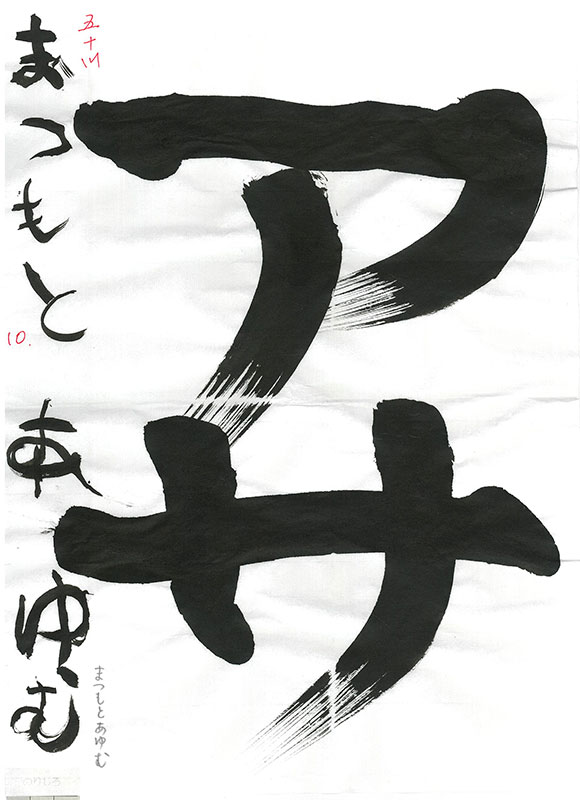 アサ
まつもと あゆむ
五十川
10.
まつもとあゆむ
のりしろ